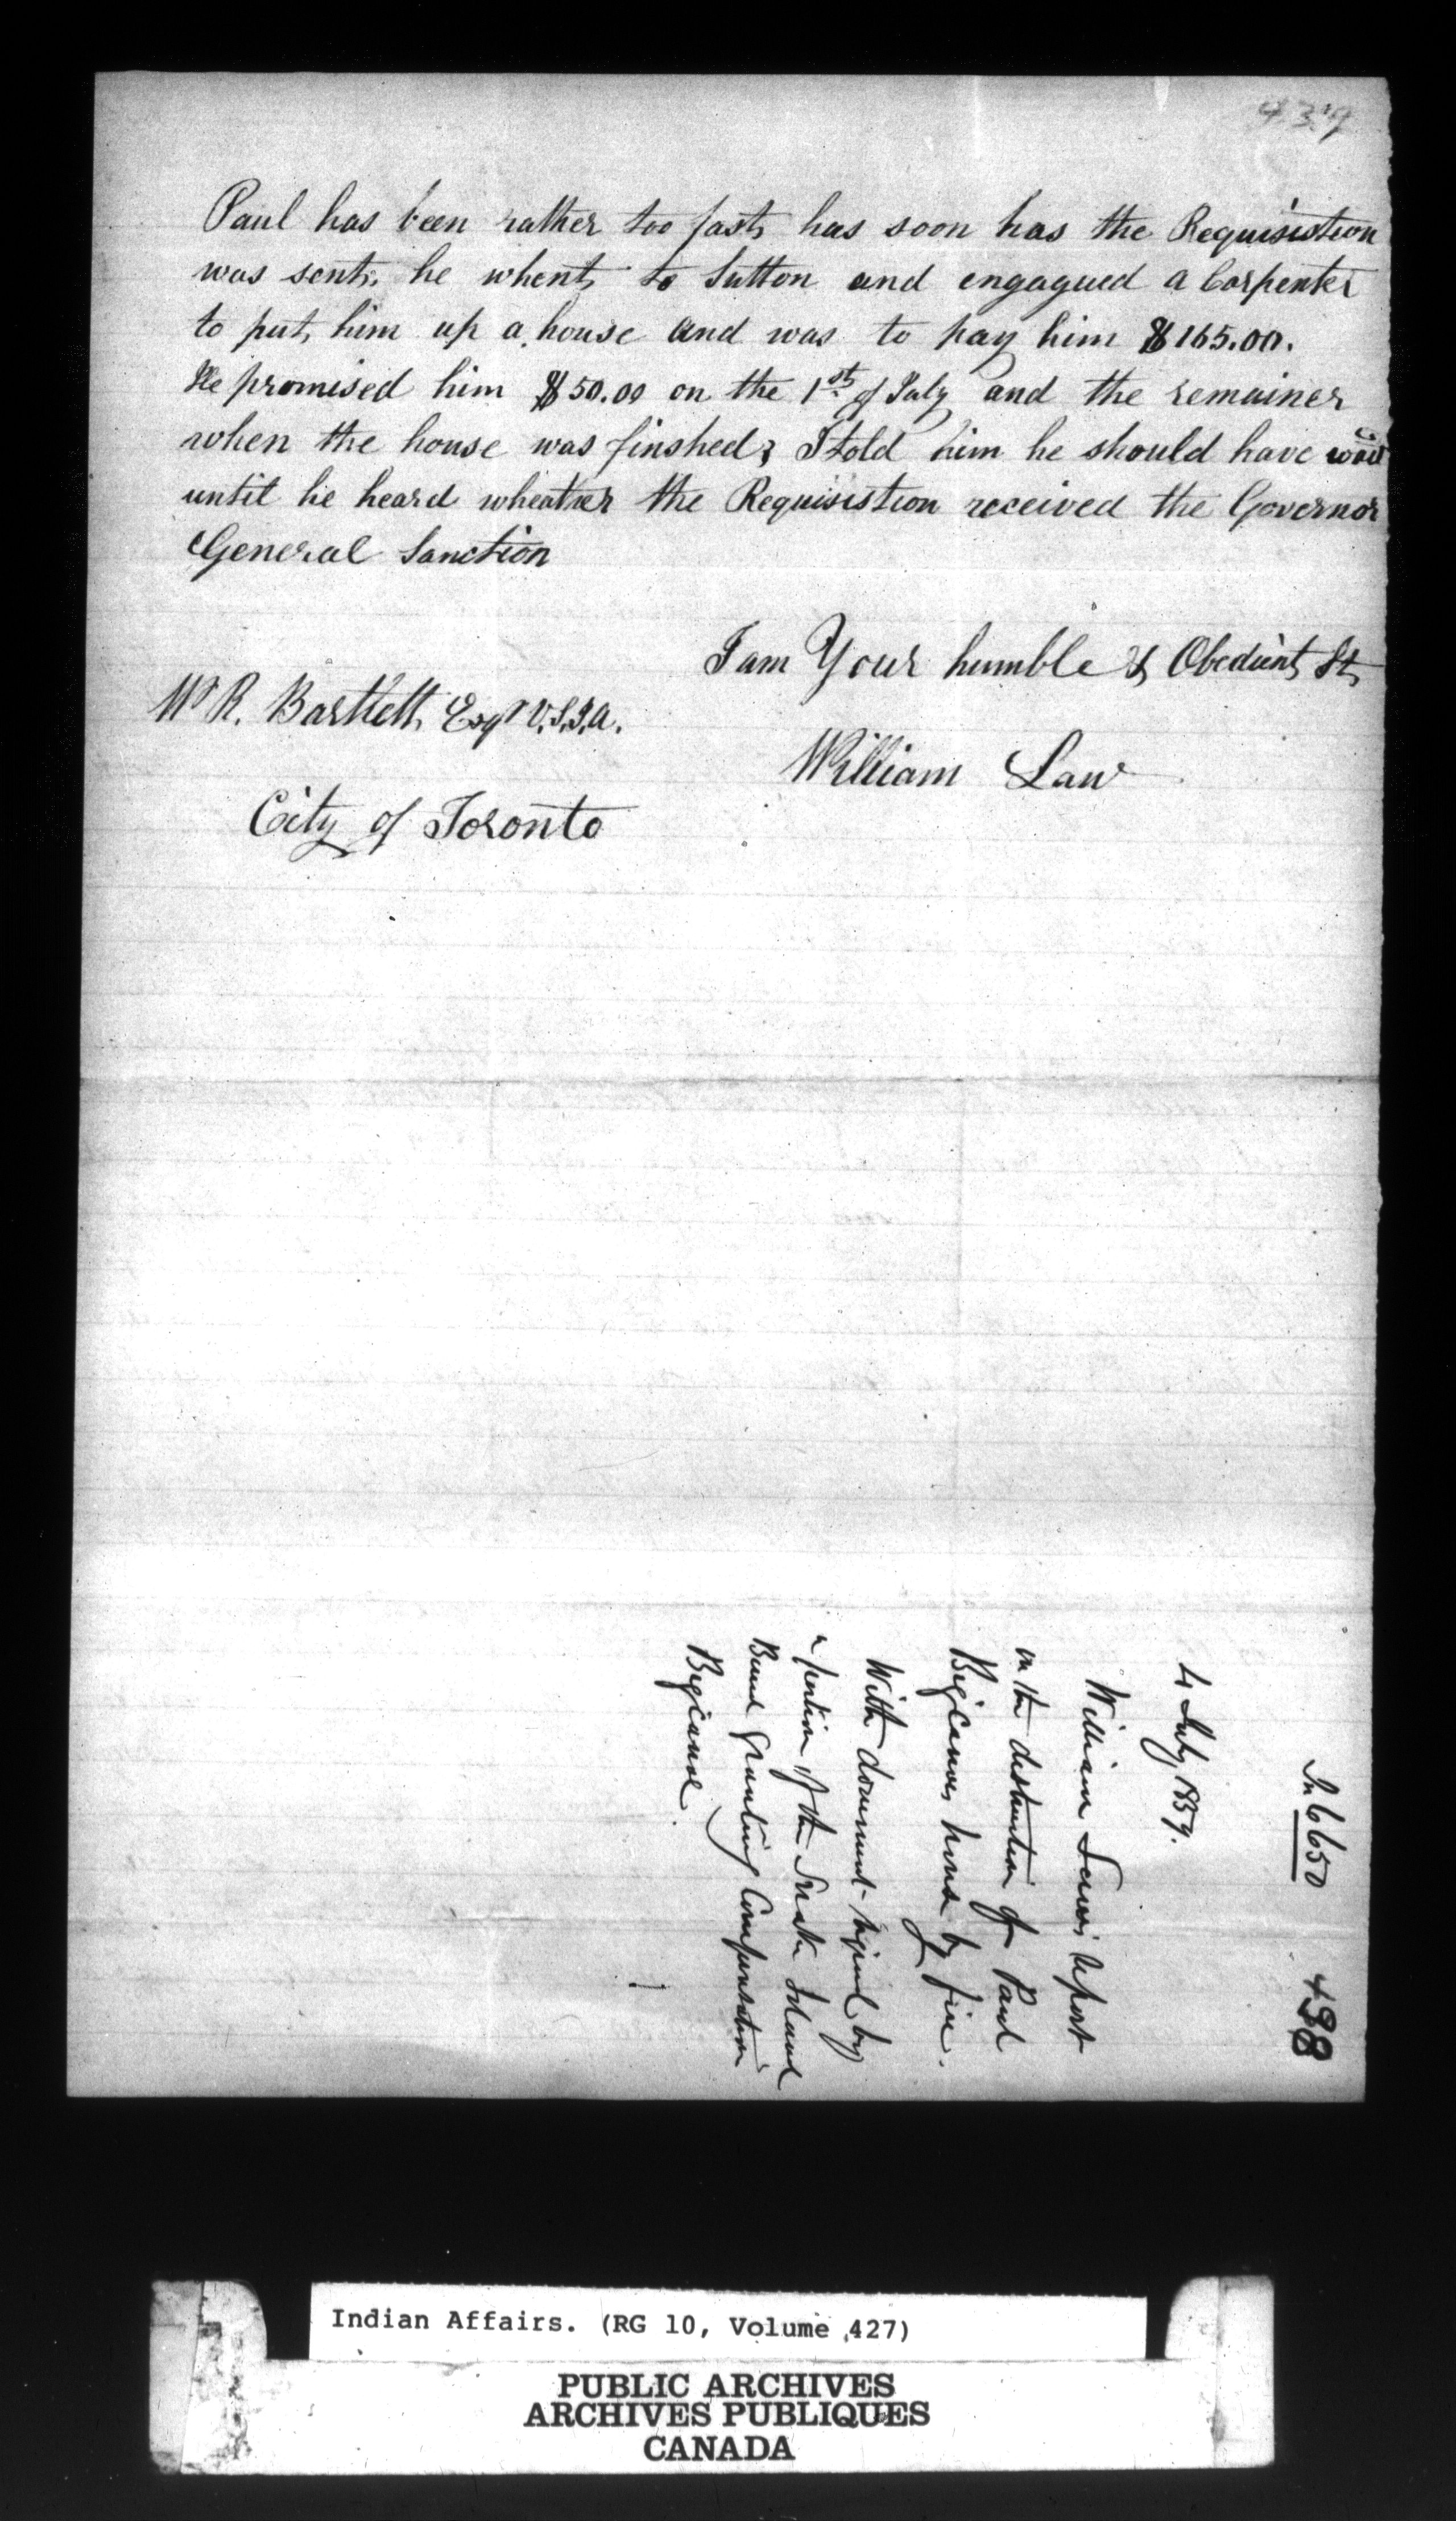 439
Paul has been rather too fast, has soon has the Requisistion
was sent, he whent, to Sutton and engagued a Carpenter
to put, him up a house and was to pay him $165.00.
He promised him $50.00 on the 1st of July and the remainer
when the house was finshed; I told him he should have
until he heard wheather the Requisistion received the Governor
General Sanction
I am Your humble & Obedient, St,
W R. Bartlett, Esqr V.S.I.A.
William Law
City of Toronto
In 6650 498
4 July 1859.
William Law's report
on the destruction of Paul
Bigcanoes house by fire.
With document signed by
a portion of the Snake Island
Band granting Compensation
Bigcanoe.
Indian Affairs. (RG 10, Volume 427)
PUBLIC ARCHIVES
ARCHIVES PUBLIQUES
CANADA